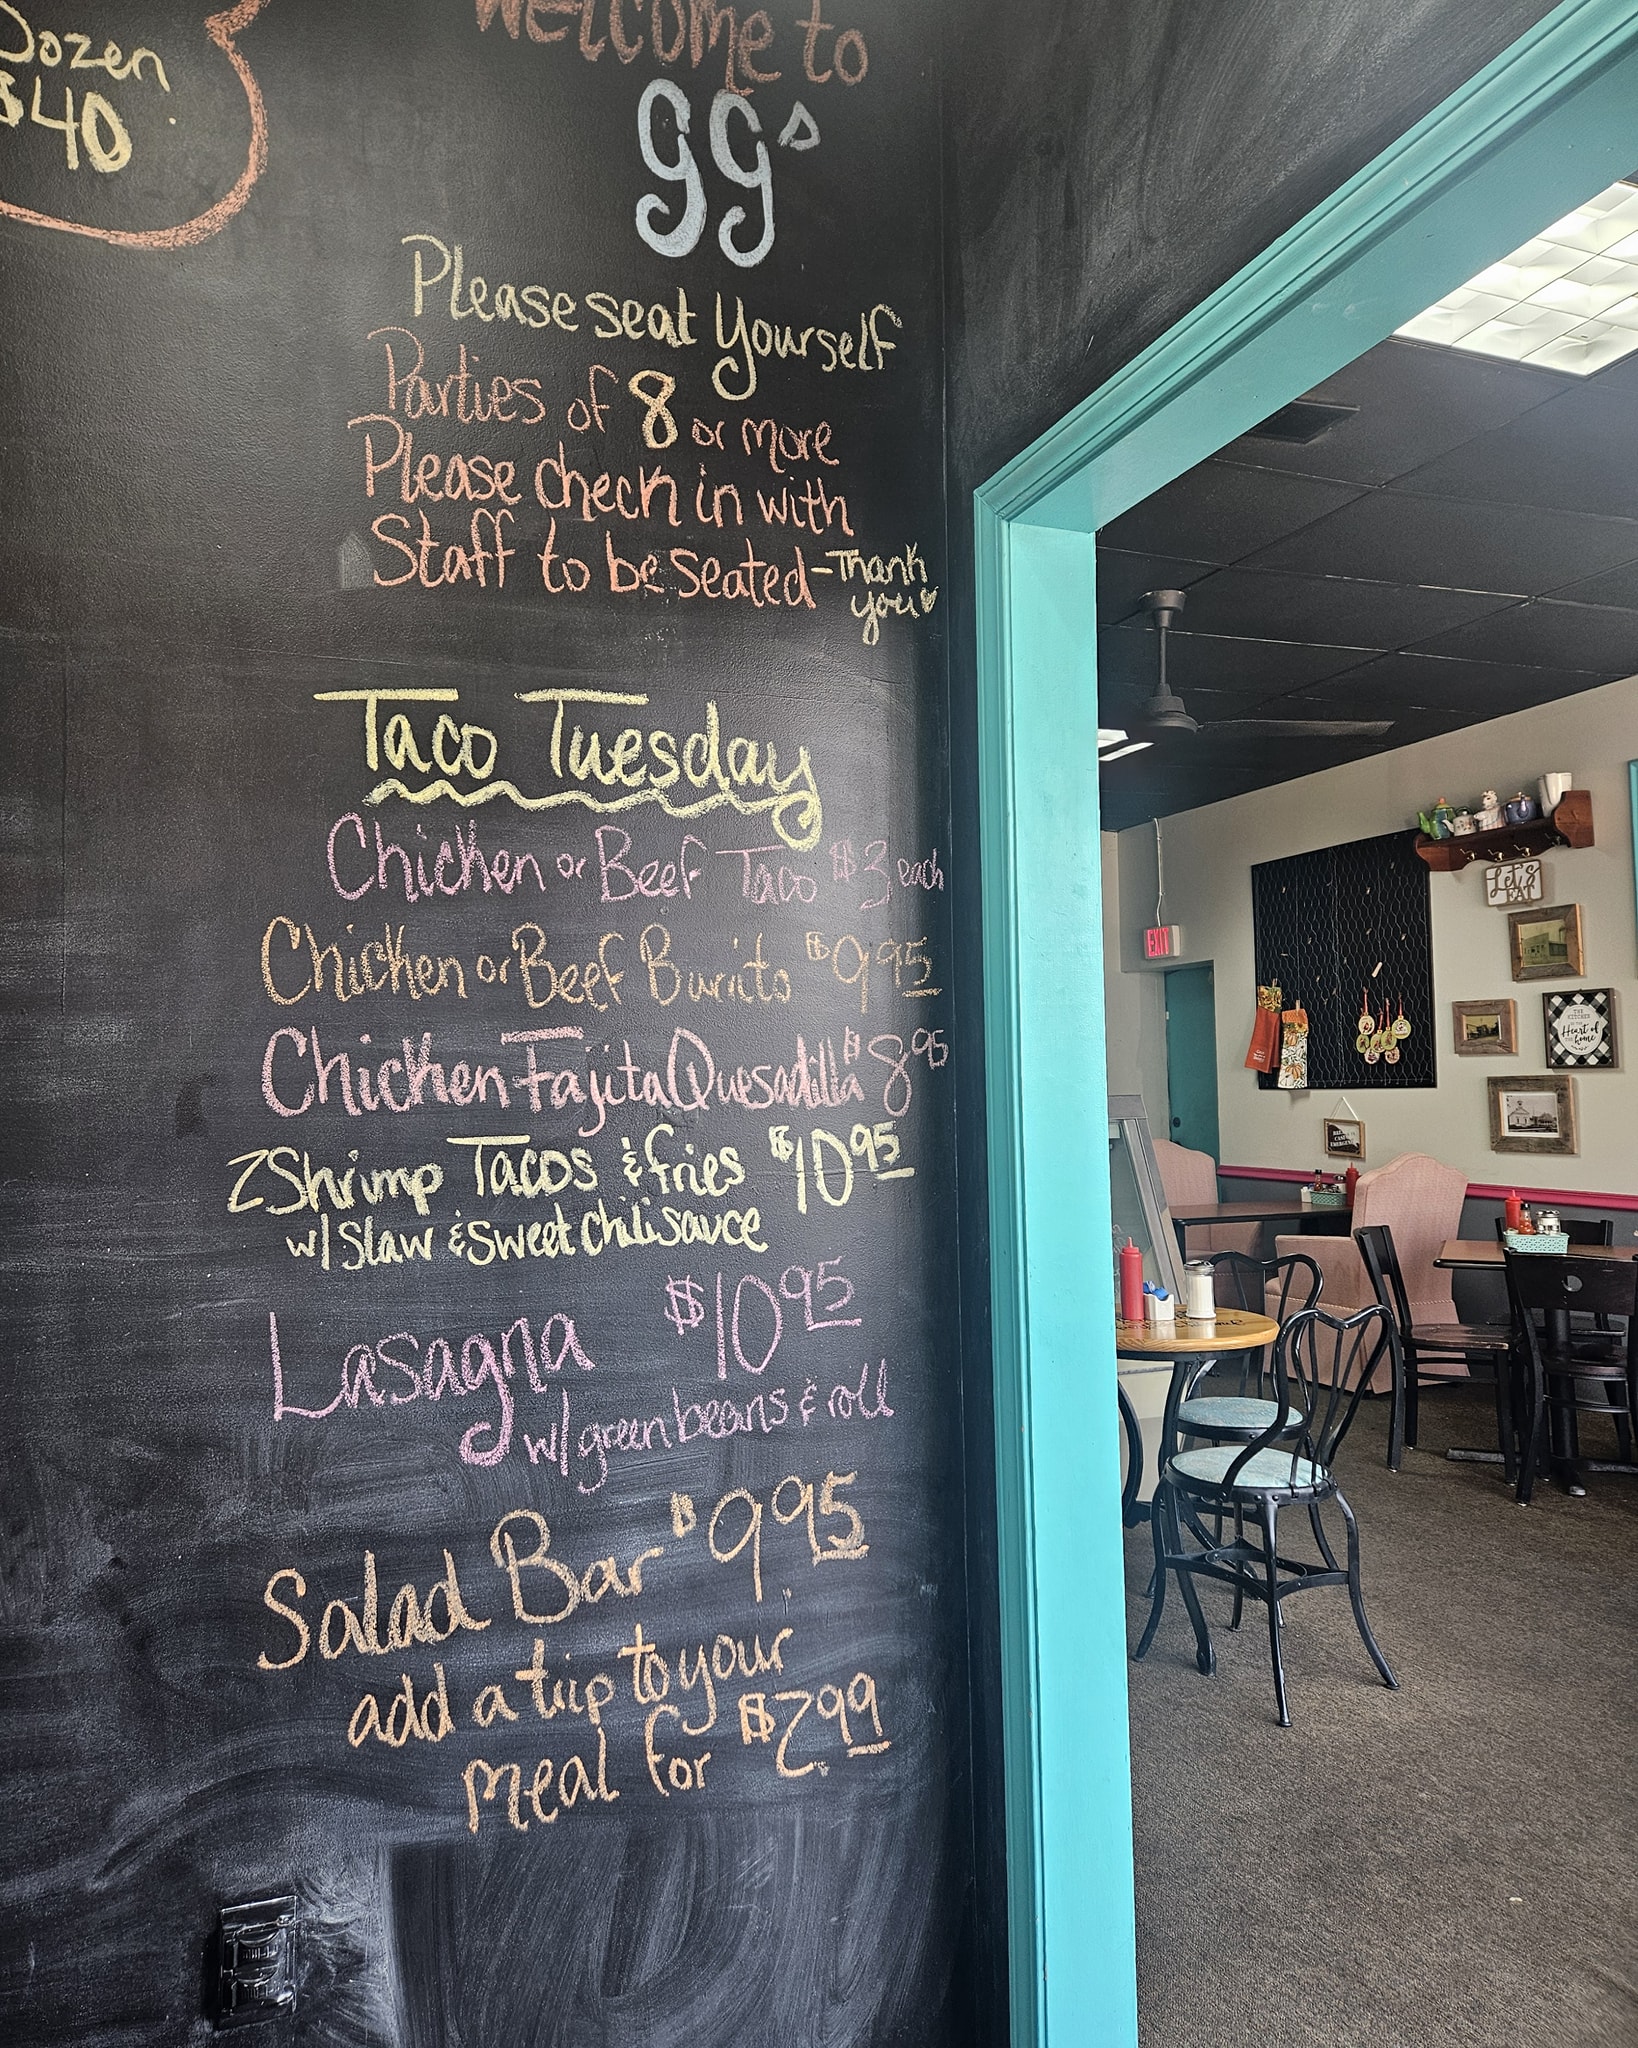 Dozen
$40
Welcome to
GG's
Please seat yourself
Parties of 8 or more
Please check in with
Staff to be seated - Thank
you
Taco Tuesday
Chicken or Beef Taco $3 each
Chicken or Beef Burrito $9.95
Chicken Fajita Quesadilla $8.95
2 Shrimp Tacos & fries $10.95
w/ slaw & sweet chili sauce
Lasagna $10.95
w/ green beans & roll
Salad Bar $9.95
add a trip to your
meal for $2.99
EXIT
Let's
EAT
THE
KITCHEN
Heart of
home